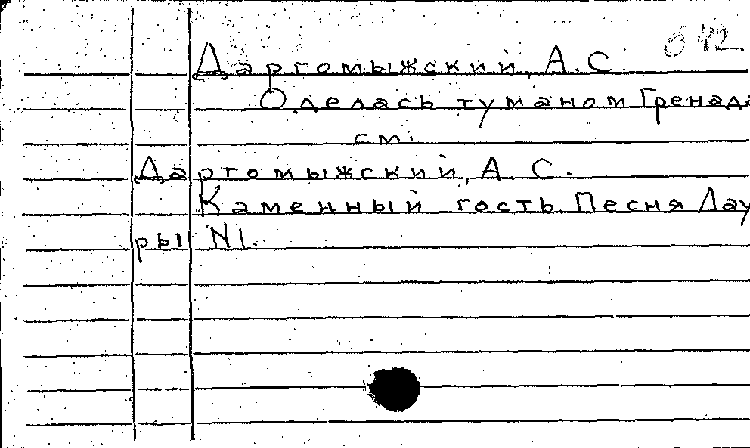 642
Даргомыжский, А. С
Оделась туманом Гренада
см.
Даргомыжский, А. С.
Каменный гость. Песня Лау
ры N1.